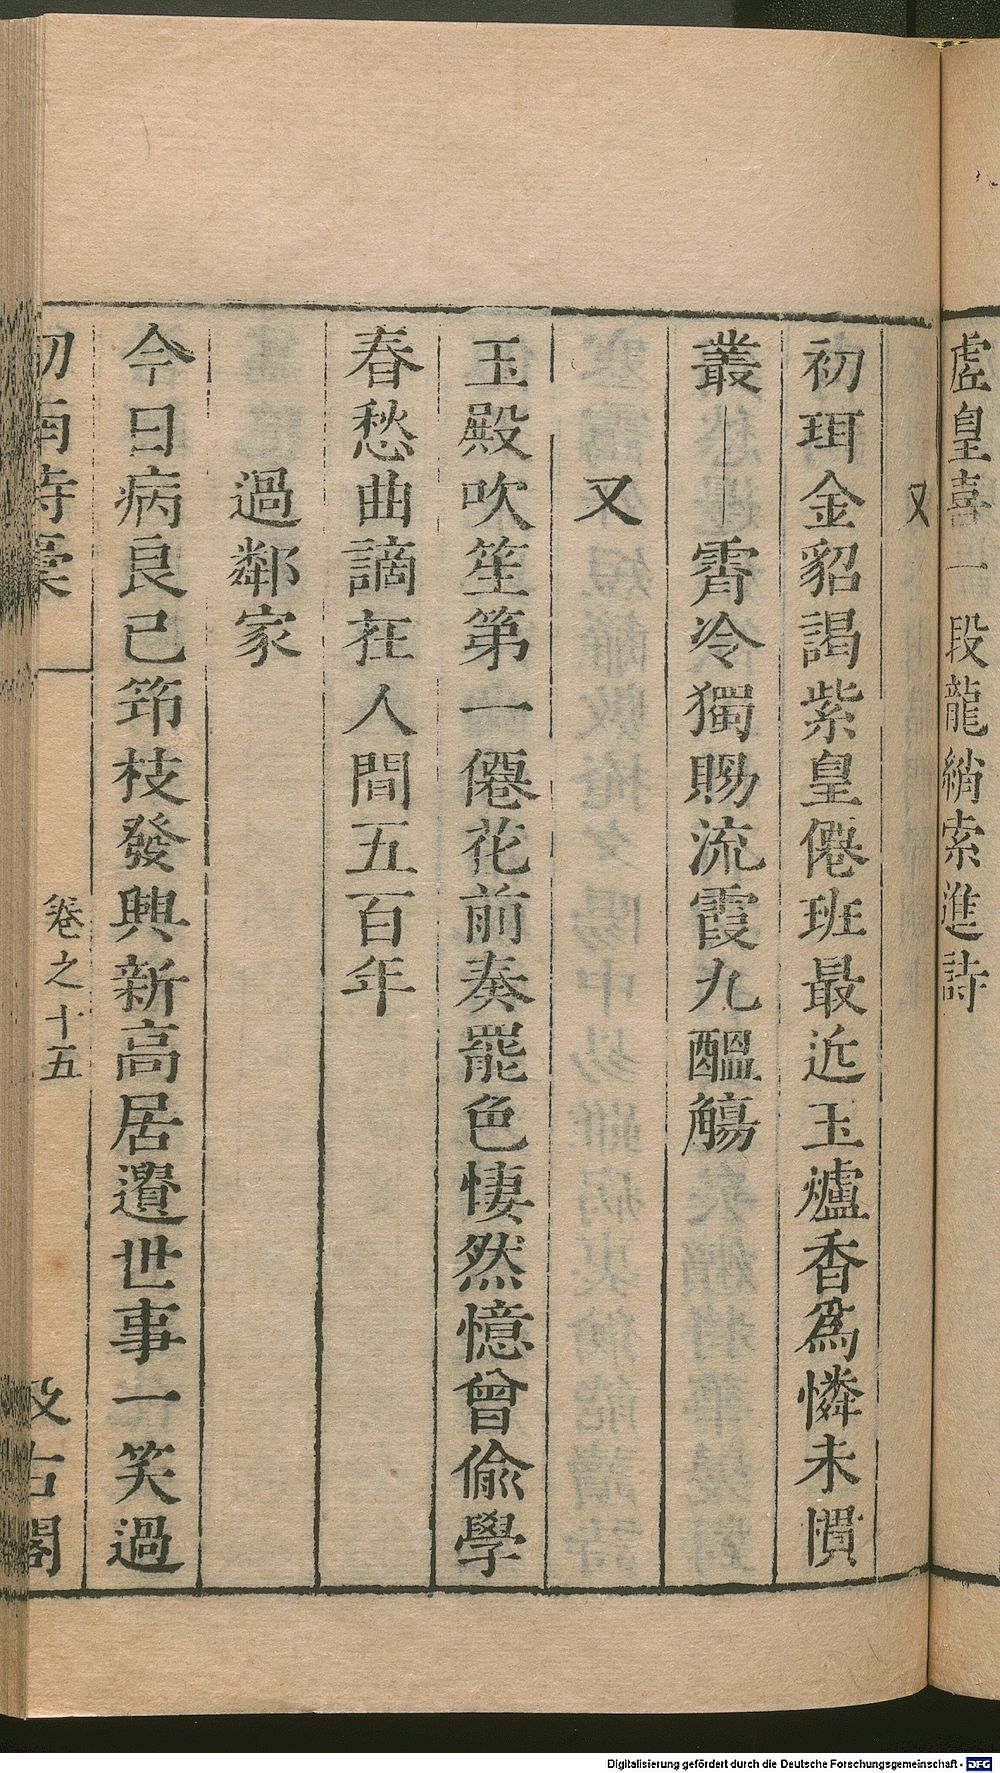 虛皇喜一段龍綃索進詩
又
初珥金貂謁紫皇僊班最近玉爐香爲憐未慣
叢霄冷獨賜流霞九醞觴
又
玉殿吹笙第一僊花前奏罷色悽然憶曾偷學
春愁曲謫在人間五百年
過鄰家
今日病良已筇枝發興新高居遺世事一笑過
劍南詩稾
卷之十五
汲古閣
Digitalisierung gefördert durch die Deutsche Forschungsgemeinschaft - DFG